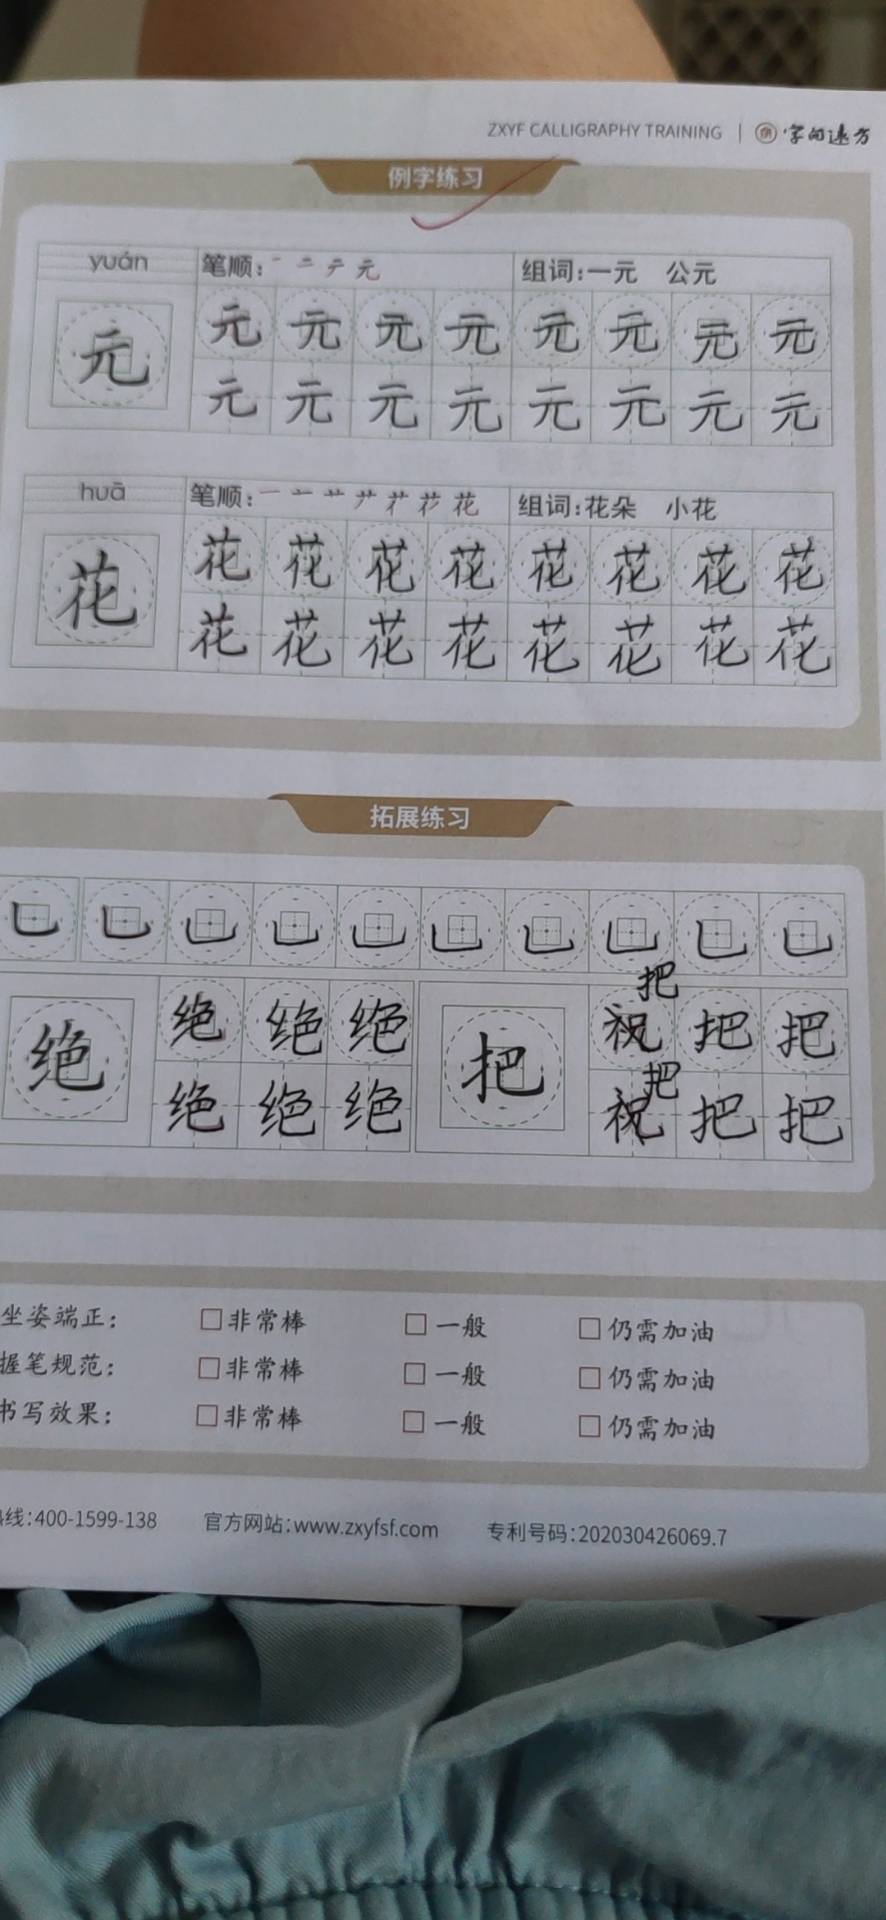 ZXYF CALLIGRAPHY TRAINING | 字向远方
例字练习
yuán 笔顺: 一 二 テ 元 组词:一元 公元
元 元 元 元 元 元 元 元 元
元 元 元 元 元 元 元 元
huā 笔顺: 组词:花朵 小花
花 花 花 花 花 花 花 花 花
花 花 花 花 花 花 花 花
拓展练习
把
绝 绝 绝 绝 把 祝 把 把
把
绝 绝 绝 祝 把 把
坐姿端正: □非常棒 □一般 □仍需加油
握笔规范: □非常棒 □一般 □仍需加油
书写效果: □非常棒 □一般 □仍需加油
线:400-1599-138 官方网站:www.zxyfsf.com 专利号码:202030426069.7